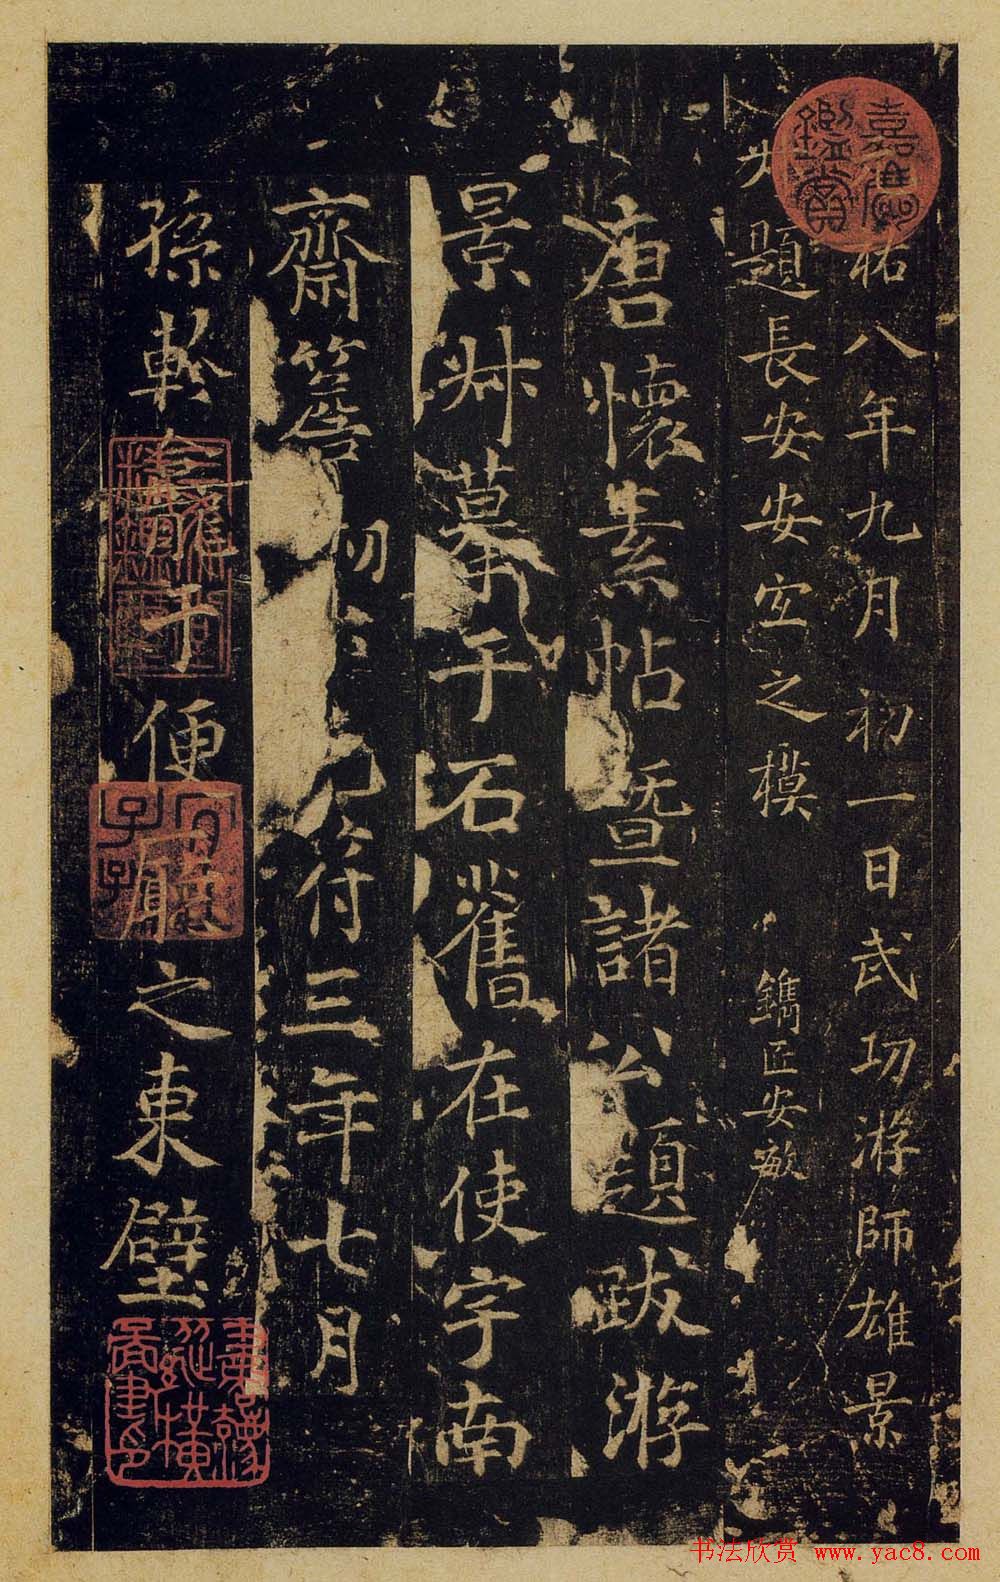 祐八年九月初一日武功游師雄景
叔題長安安宜之模 鐫匠安敏
唐懷素帖暨諸公題跋游
景叔摹于石舊在使字南
齋簷 元符三年七月
孫軫 于便廳之東壁
鑑賞
书法欣赏 www.yac8.com